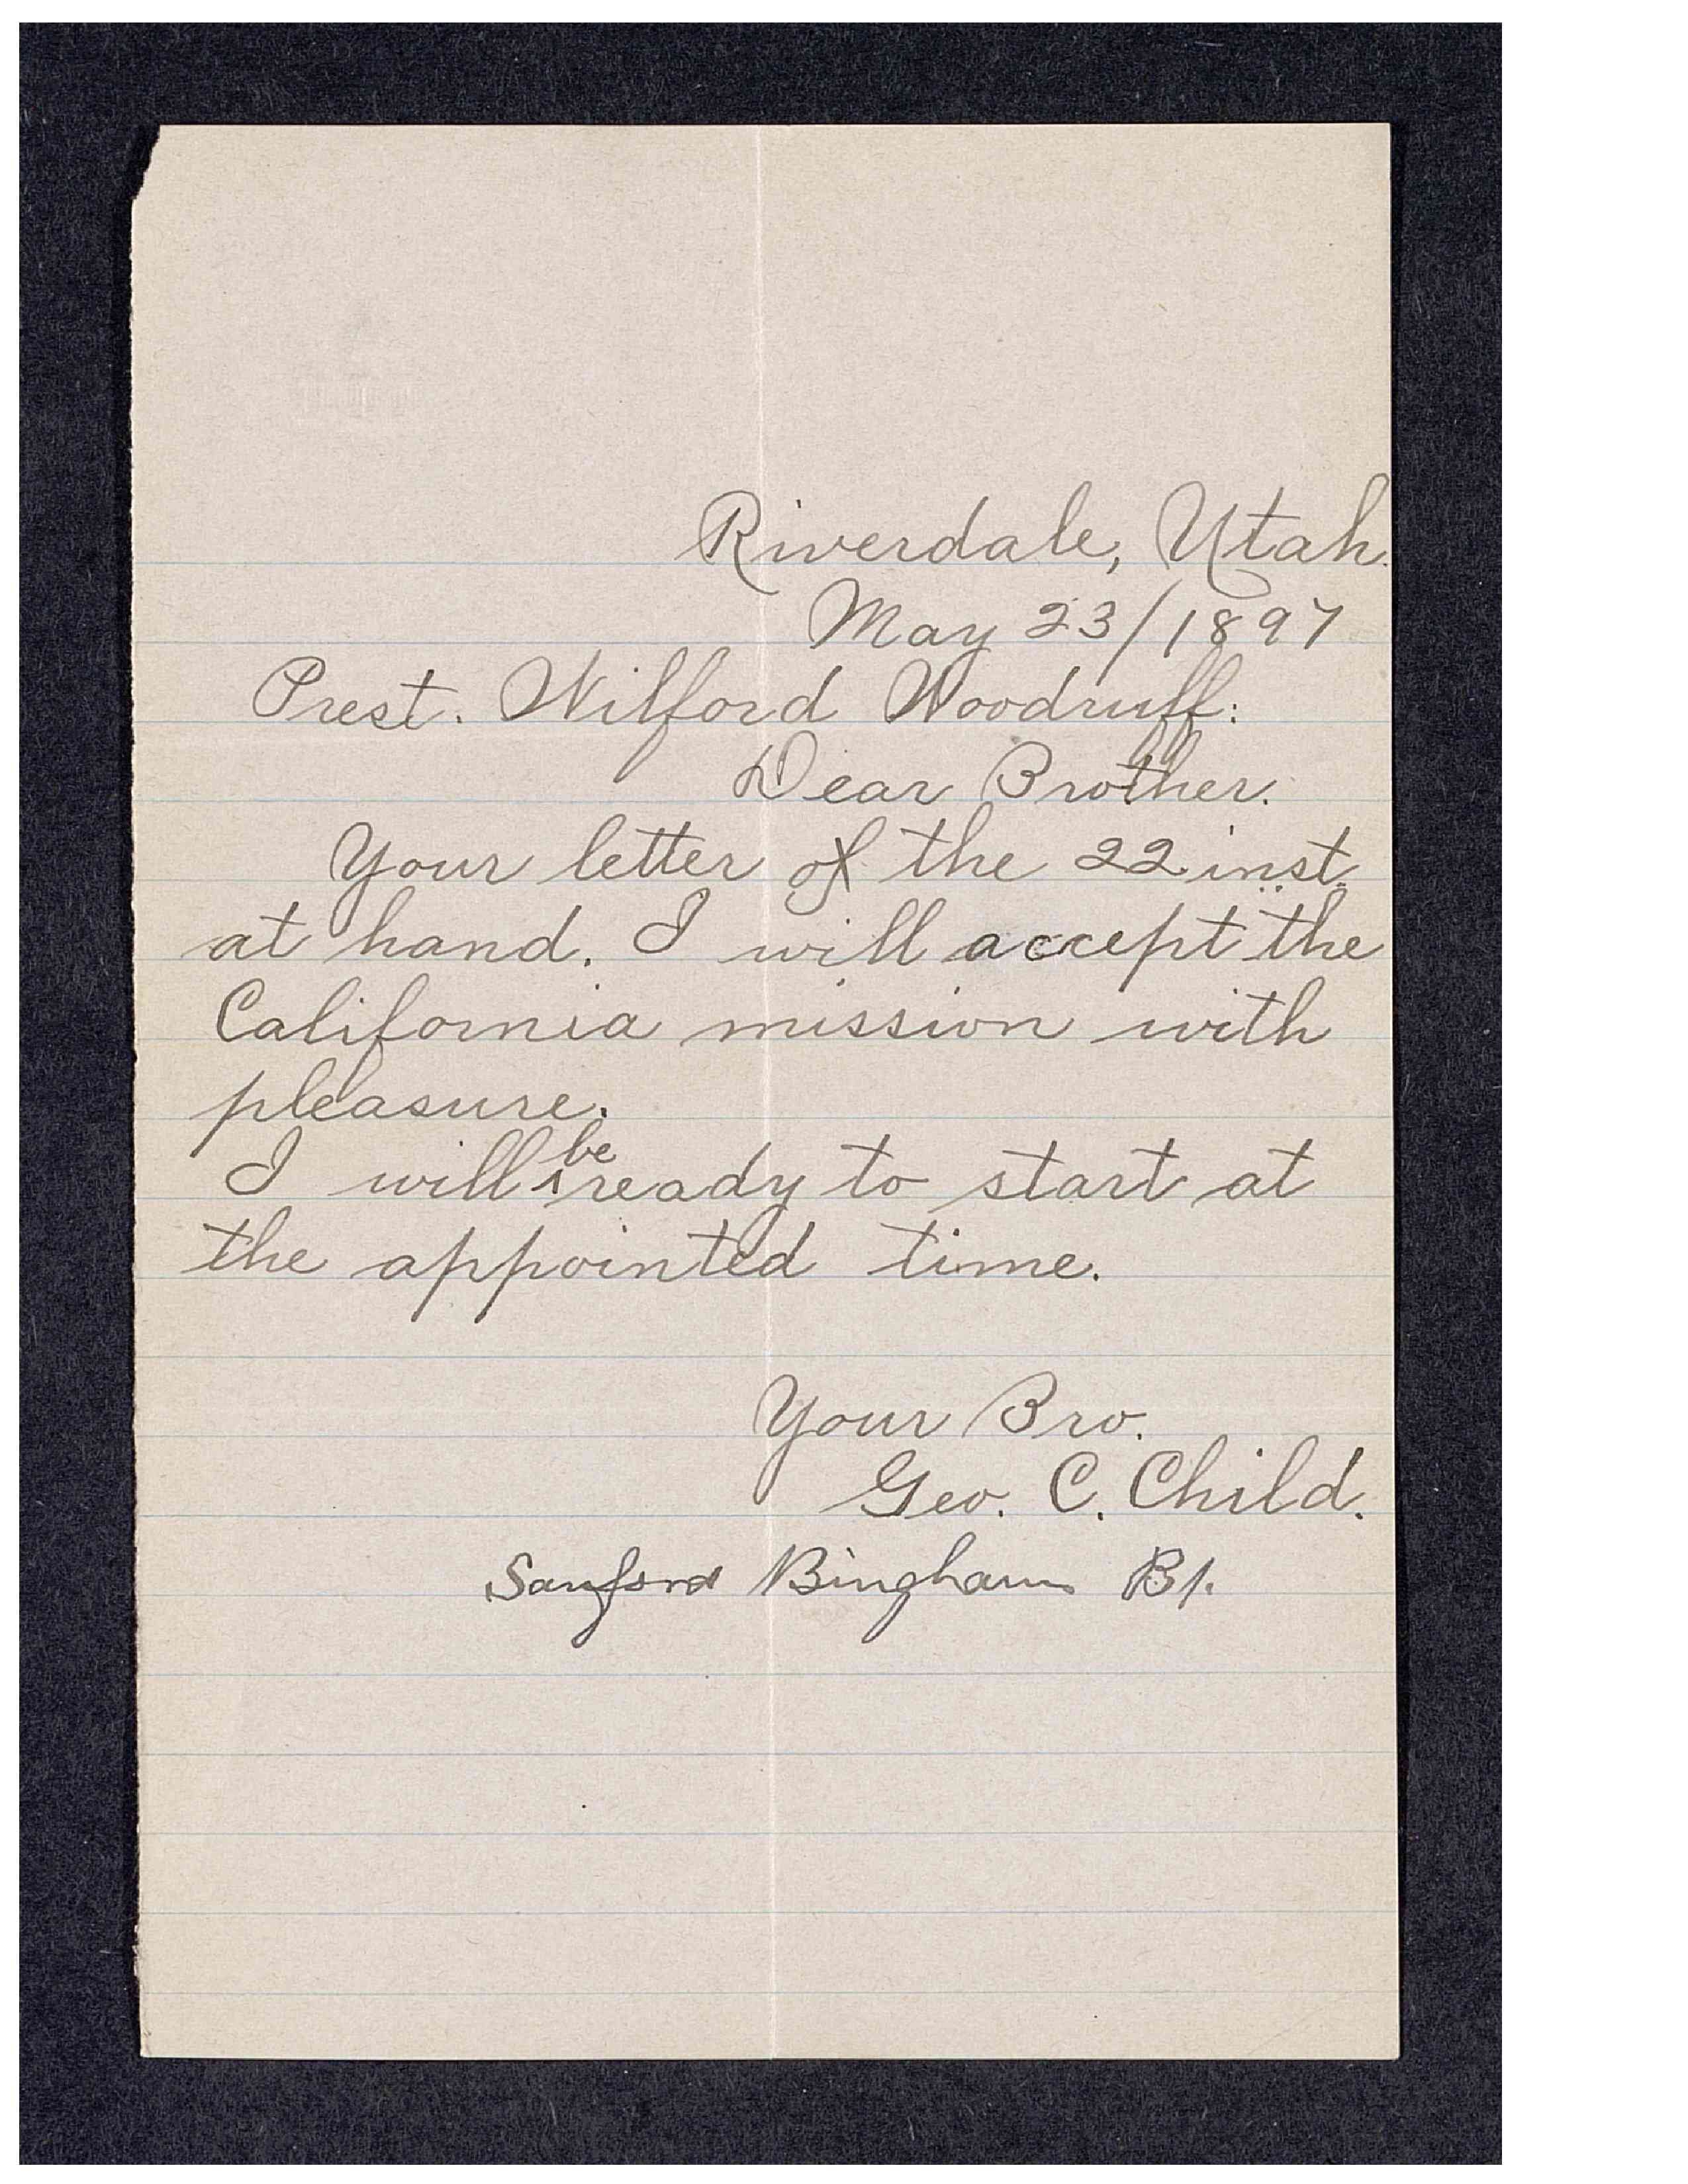 Riverdale, Utah.
May 23/1897
Prest. Wilford Woodruff:
Dear Brother.
Your letter of the 22 inst.
at hand. I will accept the
California mission with
pleasure.
I will be ready to start at
the appointed time.
Your Bro.
Geo. C. Child.
Sanford Bingham Bp.